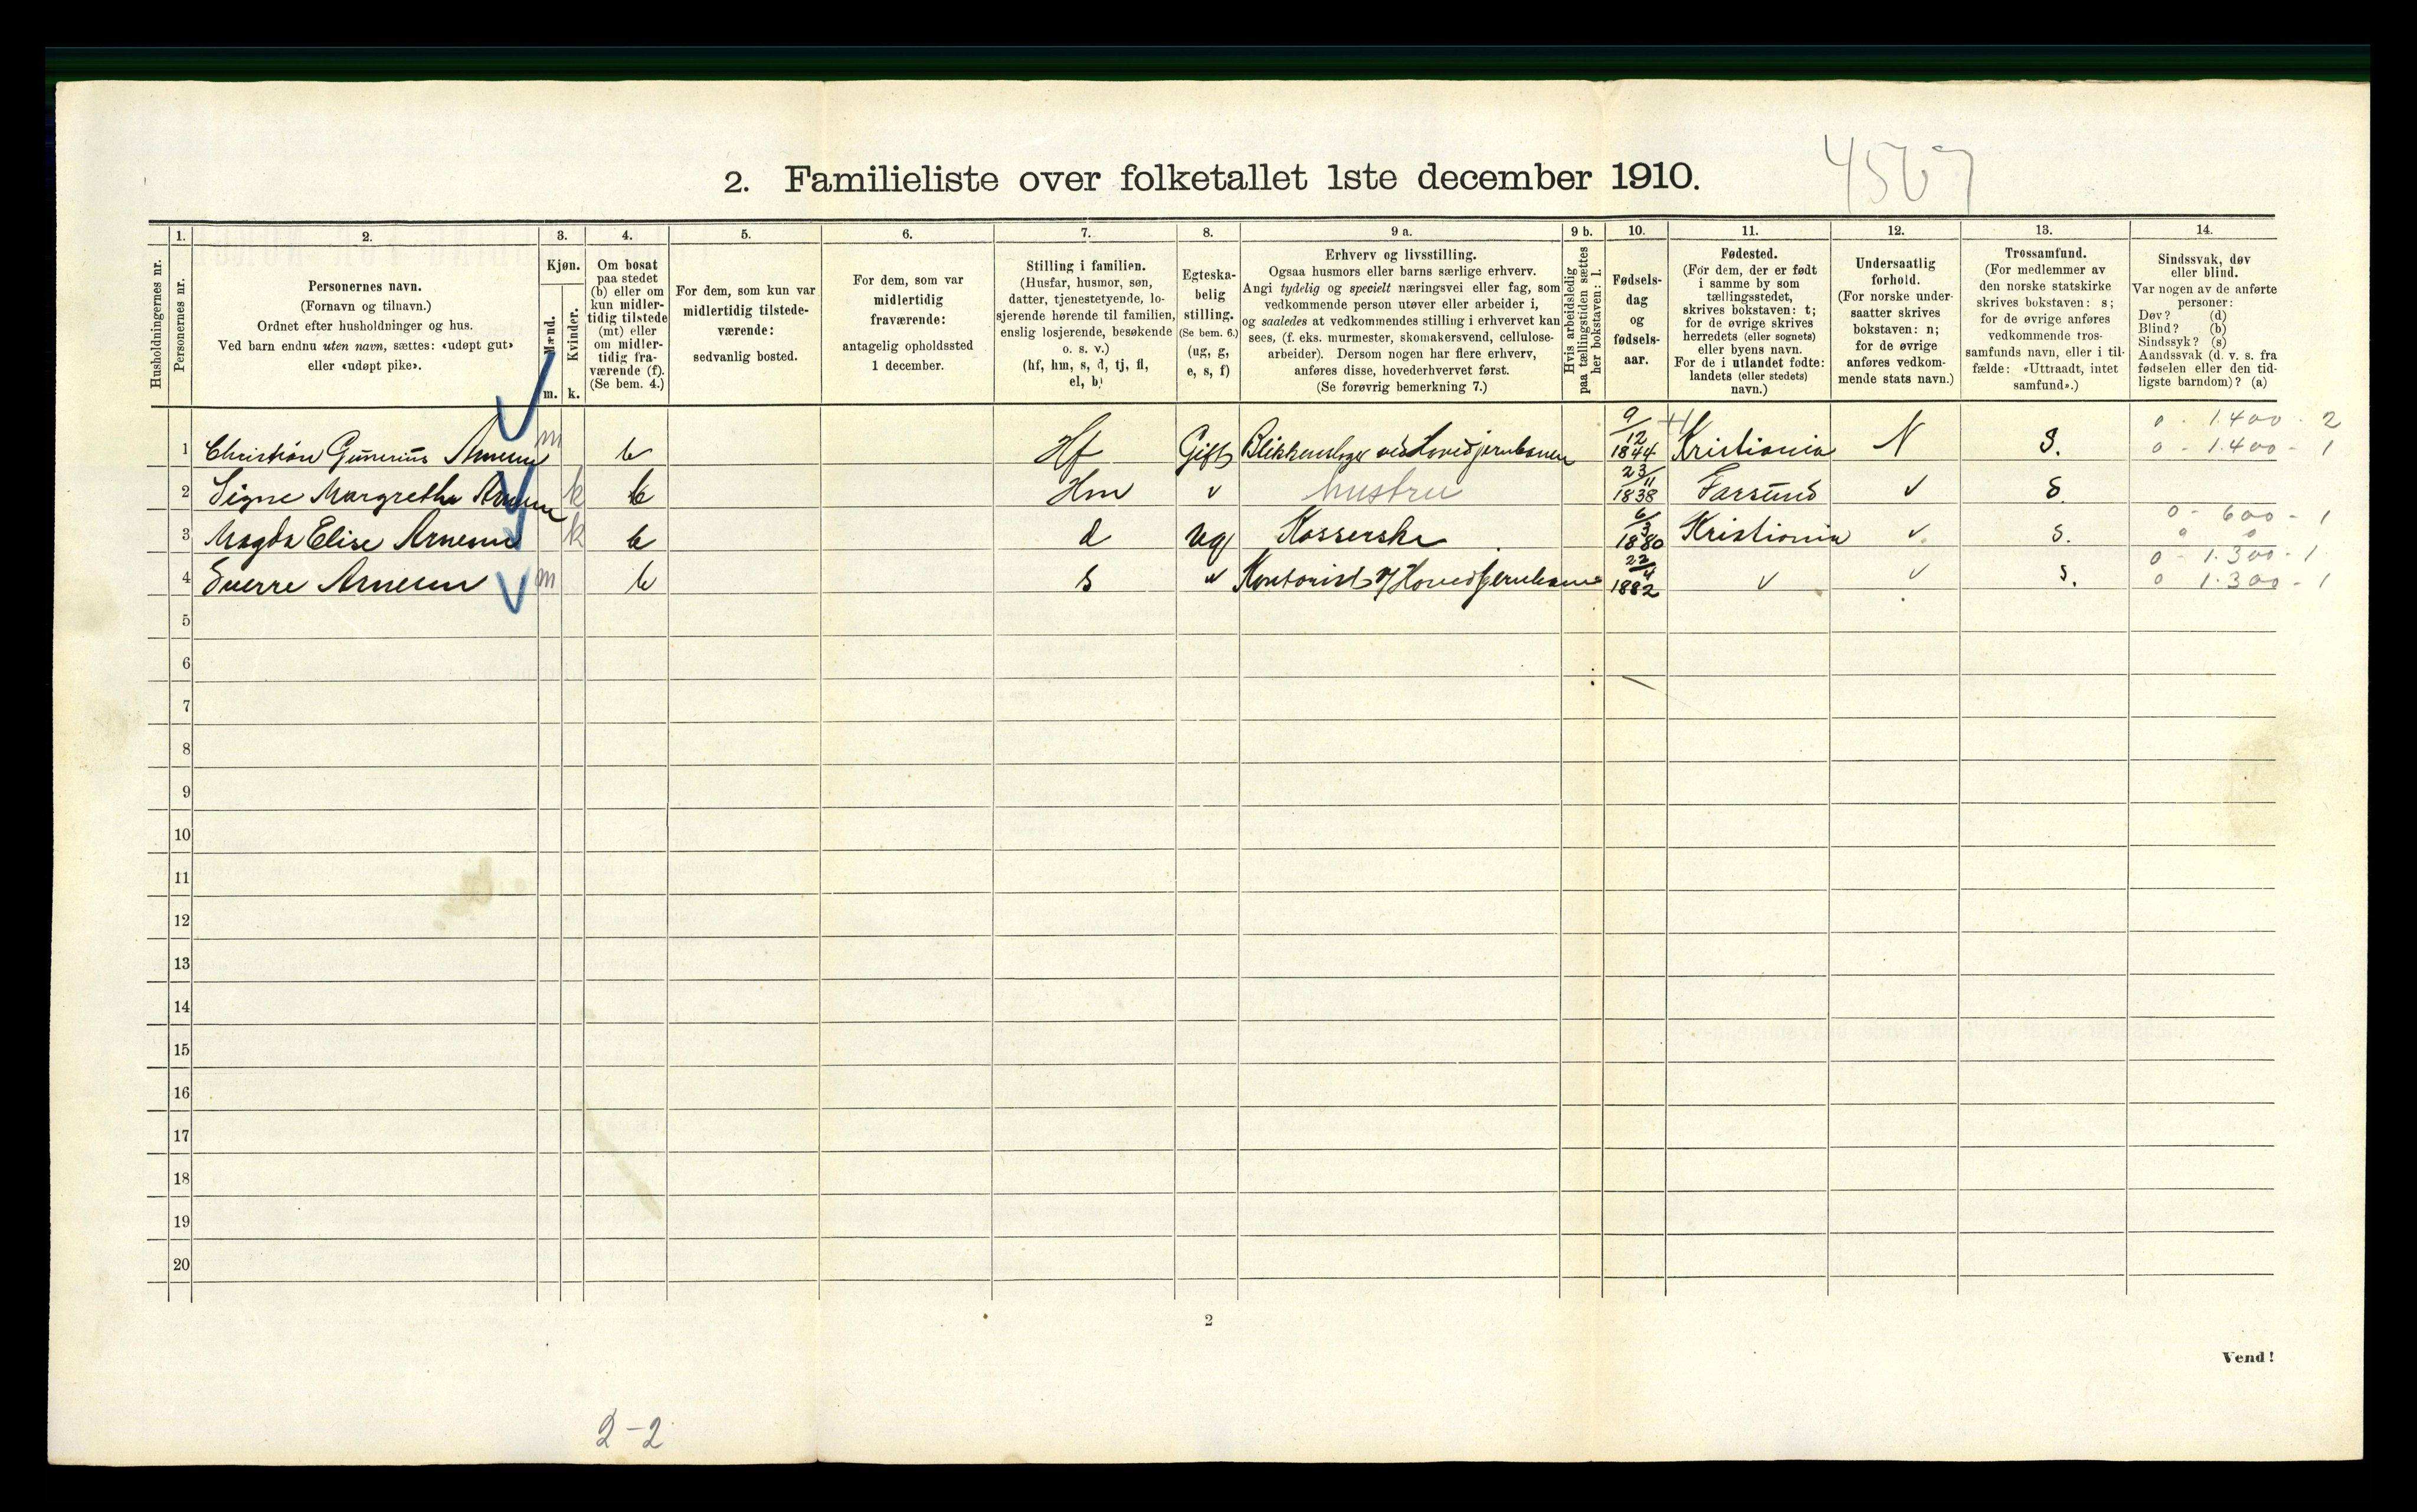 4567
2. Familieliste over folketallet 1ste december 1910.
Husholdningernes nr.
1.
Personernes nr.
2.
Personernes navn.
(Fornavn og tilnavn.)
Ordnet efter husholdninger og hus.
Ved barn endnu uten navn, sættes: «udøpt gut»
eller «udøpt pike».
3.
Kjøn.
Mænd.
Kvinder.
m. k.
4.
Om bosat
paa stedet
(b) eller om
kun midler-
tidig tilstede
(mt) eller
om midler-
tidig fra-
værende (f).
(Se bem. 4.)
5.
For dem, som kun var
midlertidig tilstede-
værende:
sedvanlig bosted.
6.
For dem, som var
midlertidig
fraværende:
antagelig opholdssted
1 december.
7.
Stilling i familien.
(Husfar, husmor, søn,
datter, tjenestetyende, lo-
sjerende hørende til familien,
enslig losjerende, besøkende
o. s. v.)
(hf, hm, s, d, tj, fl,
el, b)
8.
Egteska-
belig
stilling.
(Se bem. 6.)
(ug, g,
e, s, f)
9 a.
Erhverv og livsstilling.
Ogsaa husmors eller barns særlige erhverv.
Angi tydelig og specielt næringsvei eller fag, som
vedkommende person utøver eller arbeider i,
og saaledes at vedkommendes stilling i erhvervet kan
sees, (f. eks. murmester, skomakersvend, cellulose-
arbeider). Dersom nogen har flere erhverv,
anføres disse, hovederhvervet først.
(Se forøvrig bemerkning 7.)
9 b.
Hvis arbeidsledig
paa tællingstiden sættes
her bokstaven: l.
10.
Fødsels-
dag
og
fødsels-
aar.
11.
Fødested.
(For dem, der er født
i samme by som
tællingsstedet,
skrives bokstaven: t;
for de øvrige skrives
herredets (eller sognets)
eller byens navn.
For de i utlandet fødte:
landets (eller stedets)
navn.)
12.
Undersaatlig
forhold.
(For norske under-
saatter skrives
bokstaven: n;
for de øvrige
anføres vedkom-
mende stats navn.)
13.
Trossamfund.
(For medlemmer av
den norske statskirke
skrives bokstaven: s;
for de øvrige anføres
vedkommende tros-
samfunds navn, eller i til-
fælde: «Uttraadt, intet
samfund».)
14.
Sindssvak, døv
eller blind.
Var nogen av de anførte
personer:
Døv? (d)
Blind? (b)
Sindssyk? (s)
Aandssvak (d. v. s. fra
fødselen eller den tid-
ligste barndom)? (a)
1 Christian Gunerius Arnesen m b Hf Gift Blikkenslager ved Hovedjernbanen 9/12 1844 Kristiania N S. 0 - 1.400 - 2
0 - 1.400 - 1
2 Signe Margrethe Arnesen k b Hm v hustru 23/11 1838 Farsund v S.
3 Magda Elise Arnesen k b d ug Kasserske 6/3 1880 Kristiania v s. 0 - 600 - 1
4 Sverre Arnesen m b s v Kontorist v/ Hovedjernbanen 22/4 1882 v v s. 0 - 1.300 - 1
0 1.300 - 1
5
6
7
8
9
10
11
12
13
14
15
16
17
18
19
20
2
Vend!
2-2